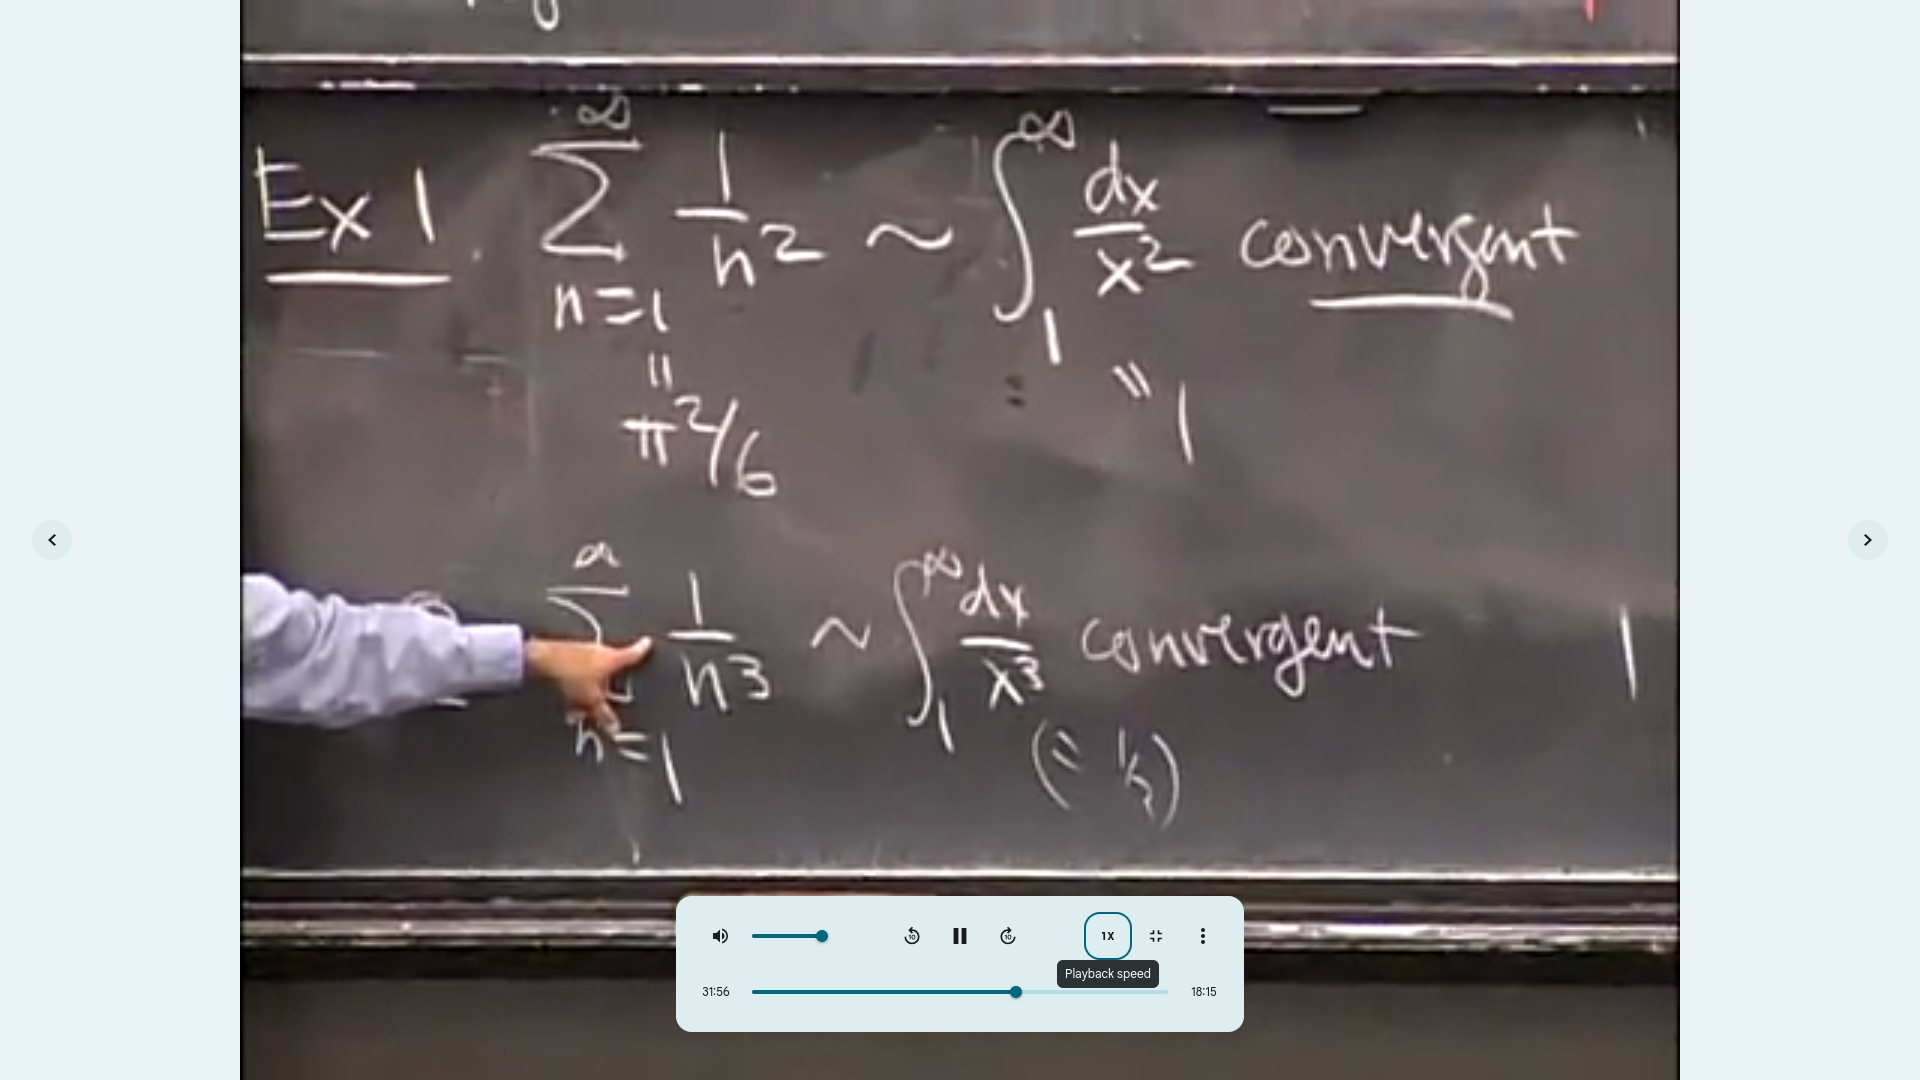 Ex 1. ∞∑n=1 1/n² ~ ∫₁^∞ dx/x² convergent
= π²/6
= 1
∑n=1 1/n³ ~ ∫₁^∞ dx/x³ convergent
(= 1/2)
1
10
10
1X
Playback speed
31:56
18:15